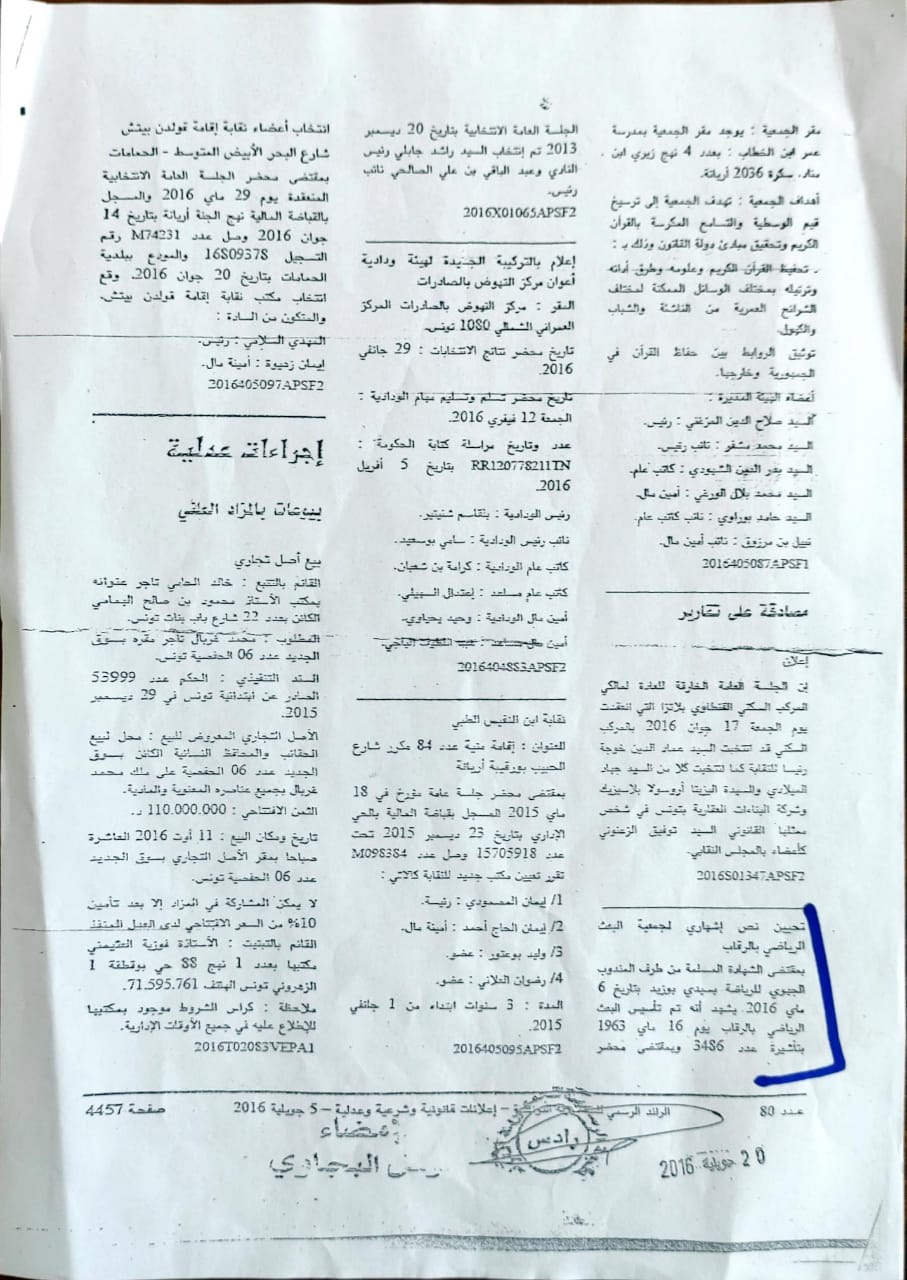 مقر الجمعية : يوجد مقر الجمعية بمدرسة
عمر ابن الخطاب : بعدد 4 نهج زيري ابن
مناد، سكرة 2036 أريانة.
أهداف الجمعية : تهدف الجمعية إلى ترسيخ
قيم الوسطية والتسامح المكرسة بالقرآن
الكريم وتحقيق مبادئ دولة القانون وذلك بـ :
ـ تحفيظ القرآن الكريم وعلومه وطرق أدائه
وترتيله بمختلف الوسائل الممكنة لمختلف
الشرائح العمرية من الناشئة والشباب
والكهول.
توثيق الروابط بين حفاظ القرآن في
الجمهورية وخارجها.
أعضاء الهيئة المديرة :
السيد صلاح الدين المزغني : رئيس.
السيد محمد مشفر : نائب رئيس.
السيد بدر الدين الشيودي : كاتب عام.
السيد محمد بلال الورغي : أمين مال.
السيد حامد بوراوي : نائب كاتب عام.
نبيل بن مرزوق : نائب أمين مال.
2016405087APSF1
مصادقة على تقارير
إعلان
إن الجلسة العامة الخارقة للعادة لمالكي
المركب السكني القنطاوي بلازا التي انعقدت
يوم الجمعة 17 جوان 2016 بالمركب
السكني قد انتخبت السيد عماد الدين خوجة
رئيسا للنقابة كما انتخبت كلا من السيد جهاد
الميلادي والسيدة اليزيتا أروسولا بلاسيزيك
وشركة البناءات العقارية بتونس في شخص
ممثليا القانوني السيد توفيق الزعنوني
كأعضاء بالمجلس النقابي.
2016S01347APSF2
تحيين نص إشهاري لجمعية البعث
الرياضي بالرقاب
بمقتضى الشهادة المسلمة من طرف المندوب
الجهوي للرياضة بسيدي بوزيد بتاريخ 6
ماي 2016. يشهد أنه تم تأسيس البعث
الرياضي بالرقاب يوم 16 ماي 1963
بتأشيرة عدد 3486 وبمقتضى محضر
الجلسة العامة الانتخابية بتاريخ 20 ديسمبر
2013 تم إنتخاب السيد راشد جابلي رئيس
النادي وعبد الباقي بن علي الصالحي نائب
رئيس.
2016X01065APSF2
إعلام بالتركيبة الجديدة لهيئة ودادية
أعوان مركز النهوض بالصادرات
المقر : مركز النهوض بالصادرات المركز
العمراني الشمالي 1080 تونس.
تاريخ محضر نتائج الانتخابات : 29 جانفي
2016.
تاريخ محضر تسلم وتسليم مهام الودادية :
الجمعة 12 فيفري 2016.
عدد وتاريخ مراسلة كتابة الحكومة :
RR120778211TN بتاريخ 5 أفريل
2016.
رئيس الودادية : بلقاسم شنيتير.
نائب رئيس الودادية : سامي بوسعيد.
كاتب عام الودادية : كرامة بن شعبان.
كاتب عام مساعد : إعتدال السهيلي.
أمين مال الودادية : وحيد يحياوي.
أمين مال مساعد : عبد اللطيف الباجي.
2016404883APSF2
نقابة ابن النفيس الطبي
العنوان : إقامة منية عدد 84 مكرر شارع
الحبيب بورقيبة أريانة
بمقتضى محضر جلسة عامة مؤرخ في 18
ماي 2015 المسجل بقباضة المالية بالحي
الإداري بتاريخ 23 ديسمبر 2015 تحت
عدد 15705918 وصل عدد M098384
تقرر تعيين مكتب جديد للنقابة كالآتي :
1/ إيمان المصمودي : رئيسة.
2/ إيمان الحاج أحمد : أمينة مال.
3/ وليد بوعتور : عضو.
4/ رضوان العلاني : عضو.
المدة : 3 سنوات ابتداء من 1 جانفي
2015.
2016405095APSF2
انتخاب أعضاء نقابة إقامة قولدن بيتش
شارع البحر الأبيض المتوسط - الحمامات
بمقتضى محضر الجلسة العامة الانتخابية
المنعقدة يوم 29 ماي 2016 والمسجل
بالقباضة المالية نهج الجنة أريانة بتاريخ 14
جوان 2016 وصل عدد M74231 رقم
التسجل 16809378 والمودع ببلدية
الحمامات بتاريخ 20 جوان 2016. وقع
انتخاب مكتب نقابة إقامة قولدن بيتش.
والمتكون من السادة :
المهدي السلامي : رئيس.
إيمان زحيوة : أمينة مال.
2016405097APSF2
إجراءات عدلية
بيوعات بالمزاد العلني
بيع أصل تجاري
القائم بالتتبع : خالد الحامي تاجر عنوانه
بمكتب الأستاذ محمود بن صالح اليمامي
الكائن بعدد 22 شارع باب بنات تونس.
المطلوب : محمد غربال تاجر مقره بسوق
الجديد عدد 06 الحفصية تونس.
السند التنفيذي : الحكم عدد 53999
الصادر عن ابتدائية تونس في 29 ديسمبر
2015.
الأصل التجاري المعروض للبيع : محل لبيع
الحقائب والمحافظ النسائية الكائن بسوق
الجديد عدد 06 الحفصية على ملك محمد
غربال بجميع عناصره المعنوية والمادية.
الثمن الافتتاحي : 110.000.000 د.
تاريخ ومكان البيع : 11 أوت 2016 العاشرة
صباحا بمقر الأصل التجاري بسوق الجديد
عدد 06 الحفصية تونس.
لا يمكن المشاركة في المزاد إلا بعد تأمين
10% من السعر الافتتاحي لدى العدل المنفذ
القائم بالتبتيت : الأستاذة فوزية العثيمني
مكتبها بعدد 1 نهج 88 حي بوقطفة 1
الزهروني تونس الهاتف 71.595.761.
ملاحظة : كراس الشروط موجود بمكتبها
للإطلاع عليه في جميع الأوقات الإدارية.
2016T02083VEPA1
عدد 80 الرائد الرسمي للجمهورية التونسية – إعلانات قانونية وشرعية وعدلية – 5 جويلية 2016 صفحة 4457
إمضاء
البجاوي
رادس
20 جويلية 2016